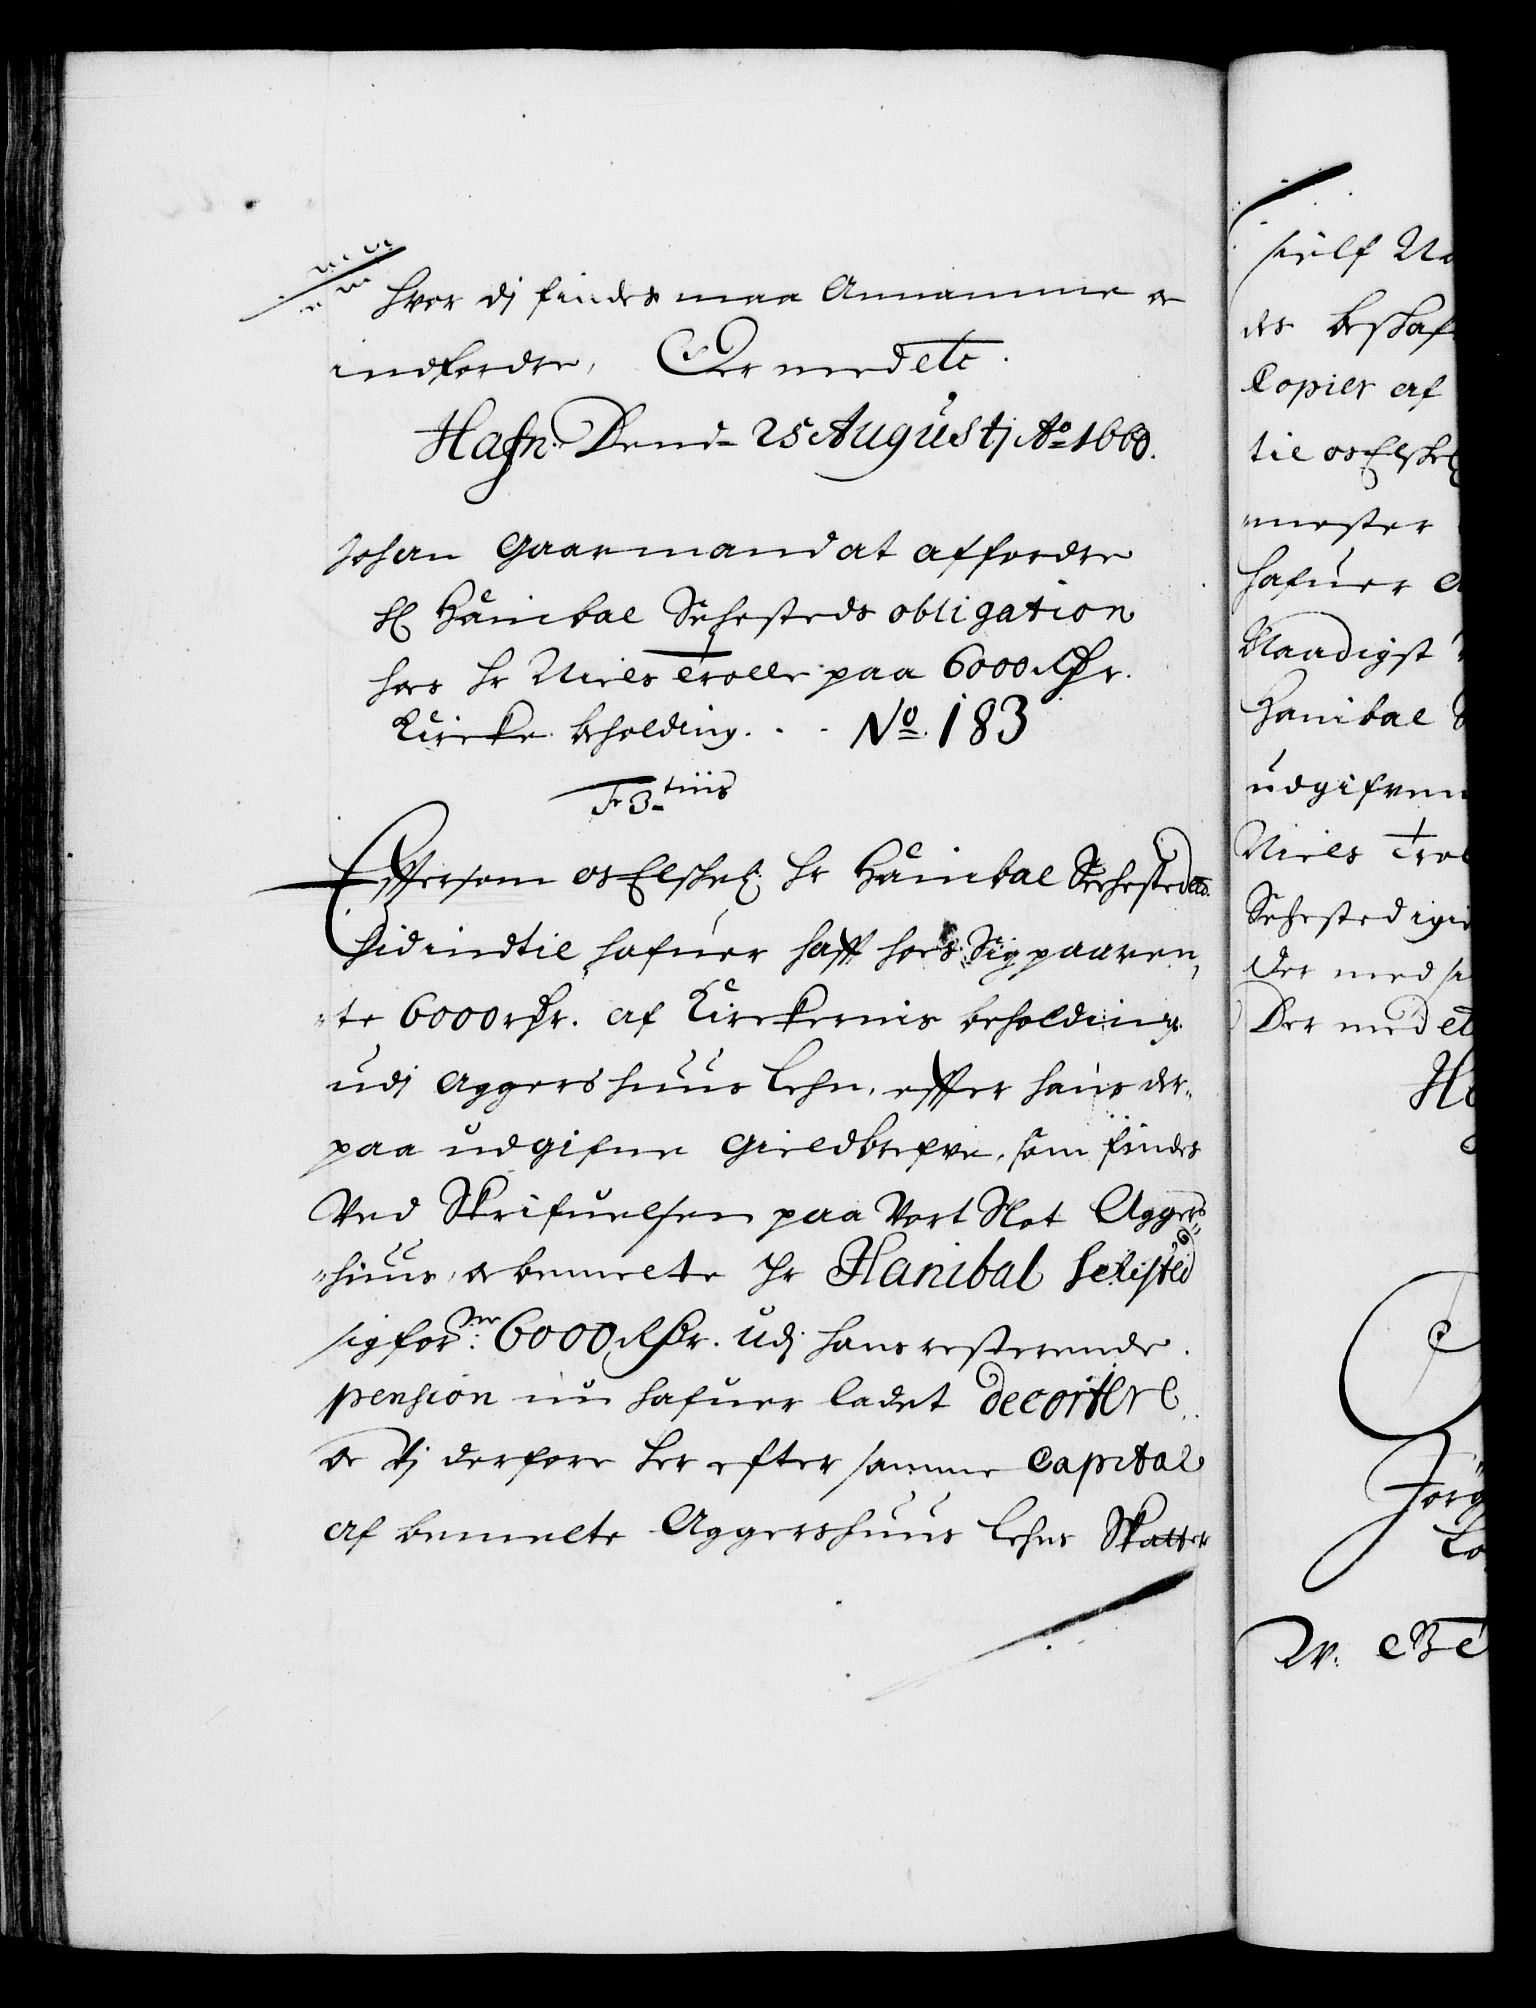 hvor dj findes maa Annamme oc
indfordre, Der med etc.
Hafn: Dend- 25 Augustj Ao 1660.
Johan Gaarmand at affordre
H Hanibal Sehesteds obligation
hos Hr Niels Trolle paa 6000 Rdr.
Kircke beholding. . . No. 183
Fr 3tius
Effersom os Elskel: Hr Hanibal Seehested etc.
hid indtil hafuer hafft hos Sig paa ren,
"te 6000 rdr. af Kirckernis beholding
udj Aggershuus Lehn, effter hans der-
paa udgifne Gieldbrefve, som findes
Ved Skrifuelsen paa Vort Slot Aggers-
"huus, oc bemelte Hr Hanibal Sehested
sig forne: 6000 Rdr. udj hans resterende
pension nu hafuer ladet decortere
oc Vj derfore her efter samme Capital
af bemelte Aggershuus Lehns Skatter
sielf
des beskaf
Copier af
til os Elskel
"mester
hafuer
Naadigst
Hanibal S
udgifven
Niels Trol
Sehested igi
der med
Der med et
H
Jörg